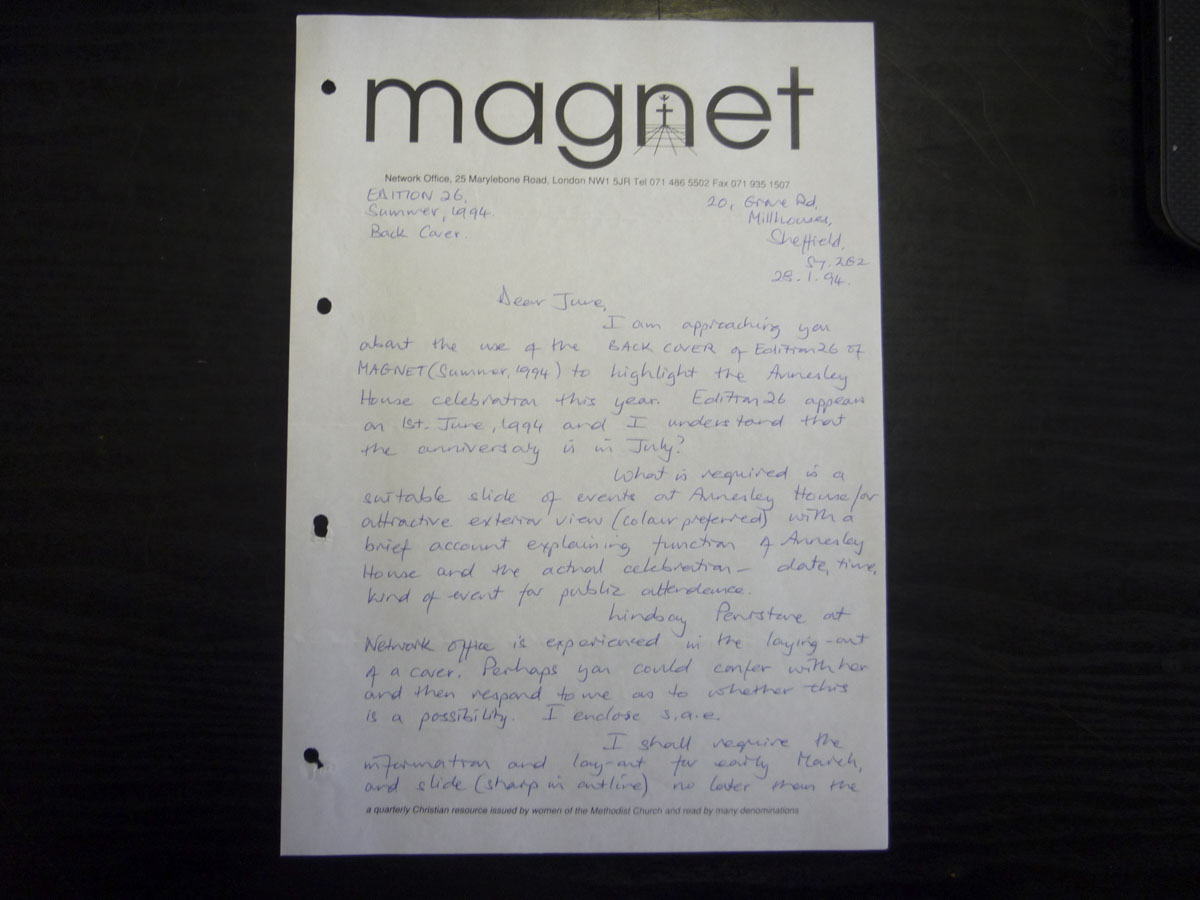 magnet
Network Office, 25 Marylebone Road, London NW1 5JR Tel 071 486 5502 Fax 071 935 1507
EDITION 26,
Summer, 1994.
Back Cover.
20, Grove Rd,
Millhouses,
Sheffield,
S7. 2GZ
28. 1. 94.
Dear June,
I am approaching you
about the use of the BACK COVER of Edition 26 of
MAGNET (Summer, 1994) to highlight the Annesley
House celebration this year. Edition 26 appears
on 1st. June, 1994 and I understand that
the anniversary is in July?
What is required is a
suitable slide of events at Annesley House/or
attractive exterior view (colour preferred) with a
brief account explaining function of Annesley
House and the actual celebration — date, time,
kind of event for public attendance.
Lindsay Penistone at
Network office is experienced in the laying-out
of a cover. Perhaps you could confer with her
and then respond to me as to whether this
is a possibility. I enclose s.a.e.
I shall require the
information and lay-out for early March,
and slide (sharp in outline) no later than the
a quarterly Christian resource issued by women of the Methodist Church and read by many denominations